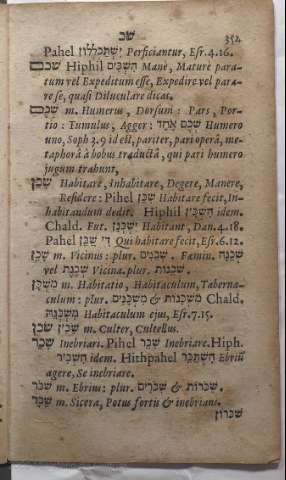 שכ 352
Pahel יִשְׁתַּכְלְלוּן Perficiantur, Esr. 4.16.
שכם Hiphil הִשְׁכִּים Mane, Mature para-
tum vel Expeditum esse, Expedire vel para-
re se, quasi Diluculare dicas.
שְׁכֶם m. Humerus, Dorsum: Pars, Por-
tio: Tumulus, Agger: שְׁכֶם אֶחָד Humero
uno, Soph 3.9 id est, pariter, pari operâ, me-
taphorâ à bobus traductâ, qui pari humero
jugum trahunt,
שָׁכַן Habitare, Inhabitare, Degere, Manere,
Residere: Pihel שִׁכֵּן Habitare fecit, In-
habitandum dedit. Hiphil הִשְׁכִּין idem.
Chald. Fut. יִשְׁכְּנָן Habitant, Dan. 4.18.
Pahel דִּי שַׁכִּן Qui habitare fecit, Esr. 6.12.
שָׁכֵן m. Vicinus: plur. שְׁכֵנִים. Fœmin. שְׁכֵנָה
vel שְׁכֶנֶת Vicina. plur. שְׁכֵנוֹת.
מִשְׁכָּן m. Habitatio, Habitaculum, Taberna-
culum: plur. מִשְׁכָּנוֹת & מִשְׁכָּנִים. Chald.
מִשְׁכְּנֵהּ Habitaculum ejus, Esr. 7.15.
שכין שַׂכִּין m. Culter, Cultellus.
שָׁכַר Inebriari. Pihel שִׁכֵּר Inebriare. Hiph.
הִשְׁכִּיר idem. Hithpahel הִשְׁתַּכֵּר Ebriũ
agere, Se inebriare.
שִׁכֹּר m. Ebrius: plur. שִׁכֹּרִים & שִׁכֹּרוֹת.
שֵׁכָר m. Sicera, Potus fortis & inebrians.
שִׁכָּרוֹן